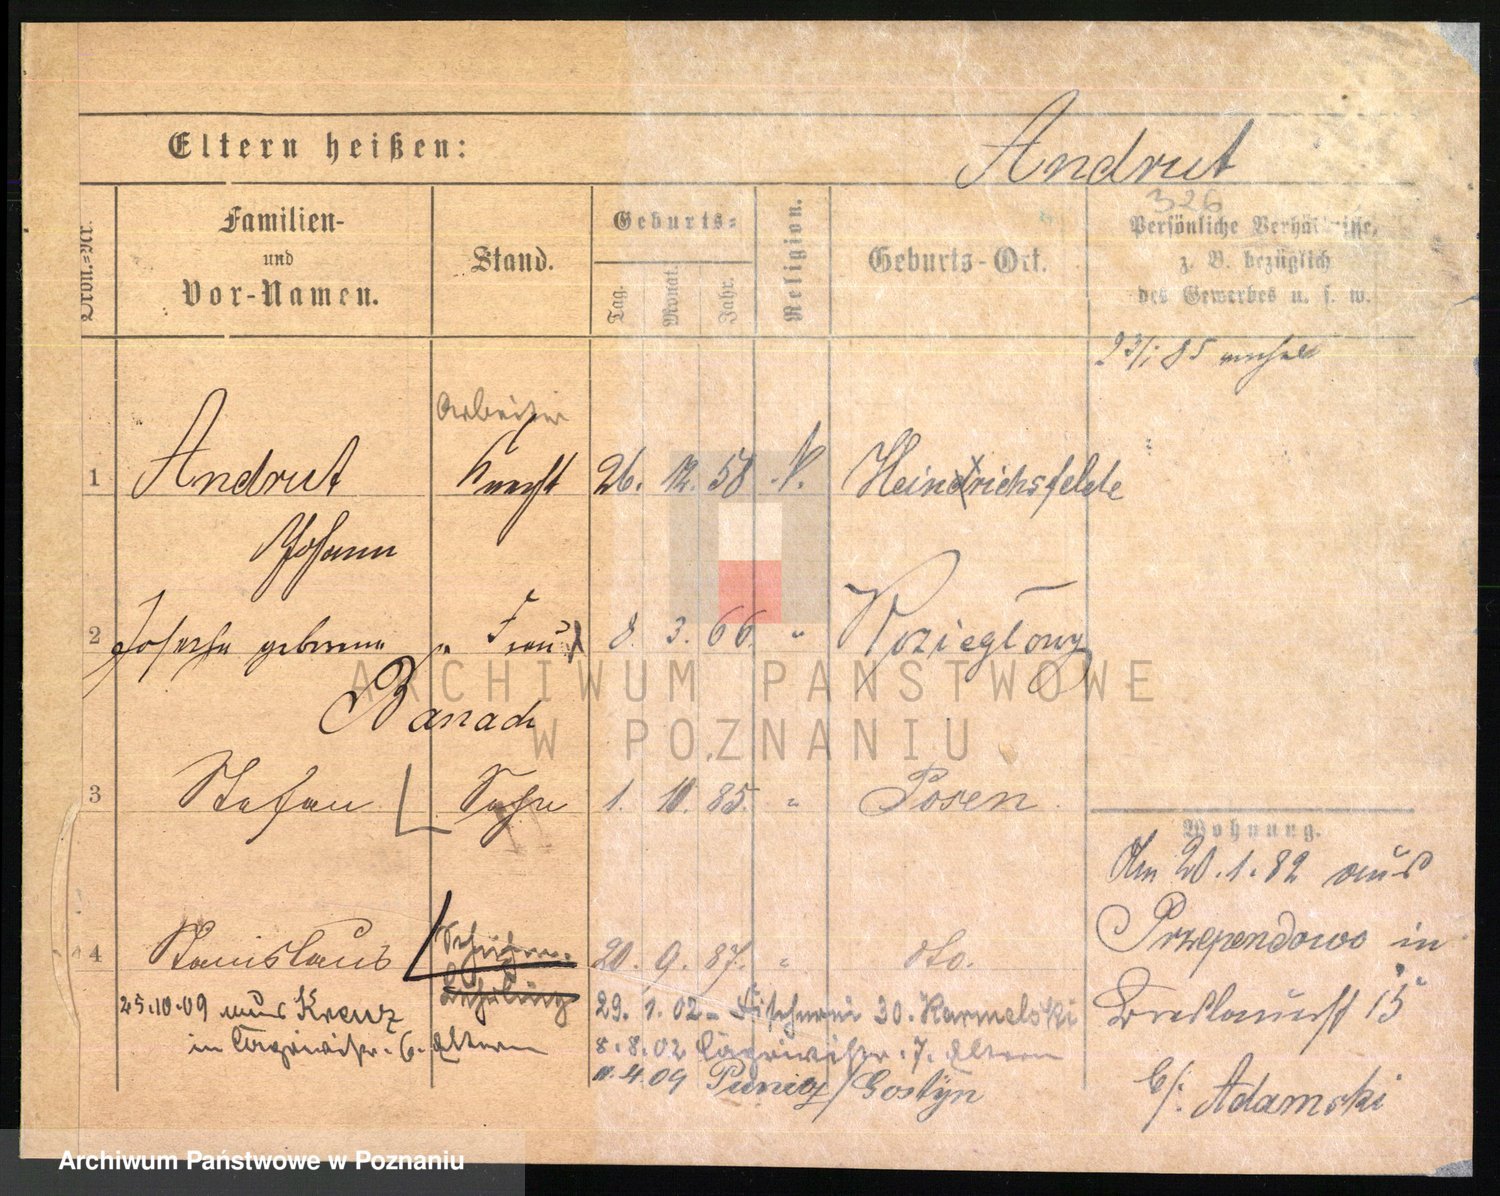 Eltern heißen:
Andrut
326
Dron.=Nr.
Familien-
und
Vor-Namen.
Stand.
Geburts=
Tag.
Monat.
Jahr.
Religion.
Geburts-Ort.
Persönliche Verhältnisse,
z. B. bezüglich
des Gewerbes u. s. w.
23/1 85
Arbeiter
1 Andrut Knecht 26. 12. 58 Heinrichsfelde
Johann
2 Josepha geborene Frau 8. 3. 66. "
Banach
3 Stefan Sohn 1. 10. 85. " Posen
Wohnung.
Am 20.1.82 aus
4 Stanislaus 20. 9. 87. " dto.
Przependowo in
Lehrling
25.10.09 aus Kreuz
29. 1. 02 - Fischerei 30. Karmelski
15
in 6. Eltern
8.8.02 7. Eltern
4.09 Punitz/Gostyn
b/: Adamski
ARCHIWUM PAŃSTWOWE
W POZNANIU
Archiwum Państwowe w Poznaniu